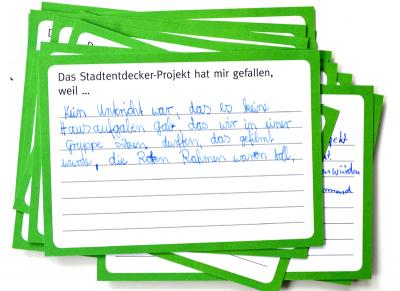 Das Stadtentdecker-Projekt hat mir gefallen,
weil ...
Kein Unterricht war, das es keine
Hausaufgaben gab, das wir in einer
Gruppe sitzen durften, das gefilmt
wurde, die Roten Rahmen waren toll.
geht
würden